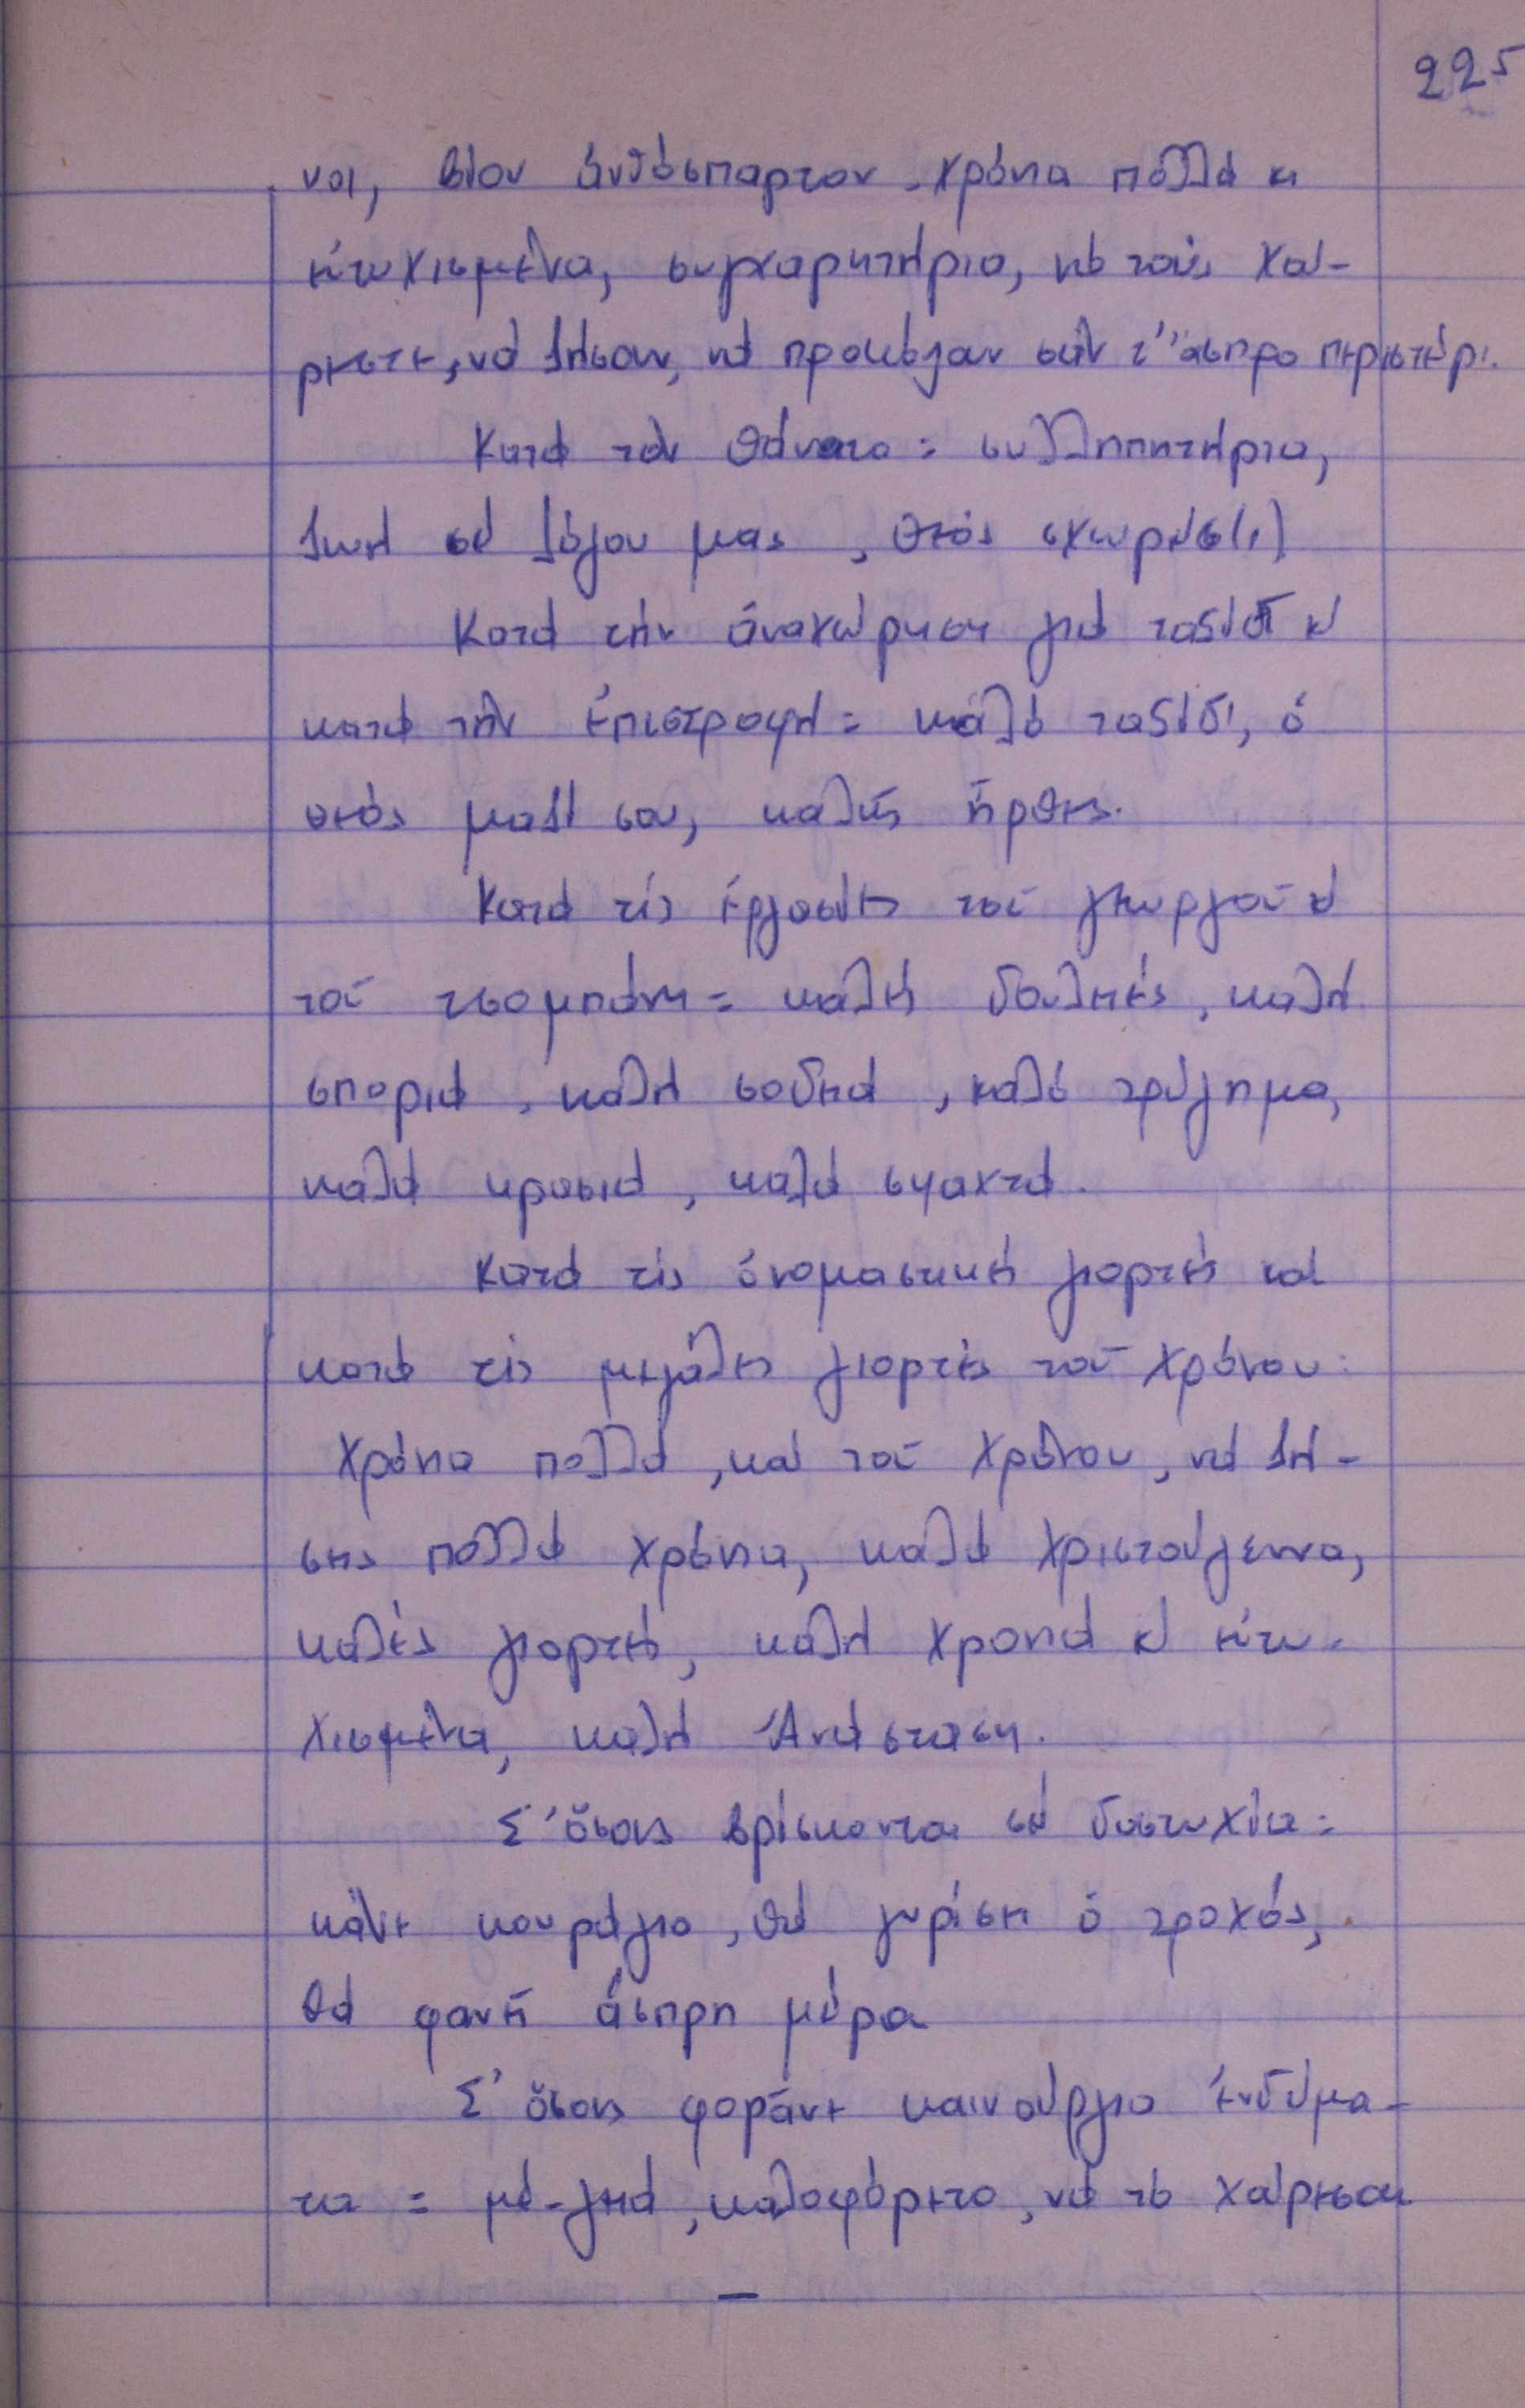 225
νοι, βίον ἀνθόσπαρτον, χρόνια πολλά κι
εὐτυχισμένα, συγχαρητήρια, νά τούς χαί-
ρεστε, νά ζήσουν, νά προκόψουν σάν τ' ἄσπρο περιστέρι.
Κατά τόν θάνατο = συλληπητήρια,
ζωή σέ λόγου μας, θεός σχωρέσ(ι)
Κατά τήν ἀναχώρηση γιά ταξίδι κ'
κατά τήν ἐπιστροφή = καλό ταξίδι, ὁ
θεός μαζί σου, καλῶς ἦρθες.
Κατά τίς ἐργασίες τοῦ γεωργοῦ κ'
τοῦ τσομπάνη = καλές δουλειές, καλή
σποριά, καλή σοδειά, καλό τρύγημα,
καλά κρασιά, καλά σφαχτά.
Κατά τίς ὀνομαστικές γιορτές καί
κατά τίς μεγάλες γιορτές τοῦ χρόνου:
Χρόνια πολλά, καί τοῦ χρόνου, νά ζή-
σης πολλά χρόνια, καλά Χριστούγεννα,
καλές γιορτές, καλή χρονιά κ' εὐτυ-
χισμένα, καλή Ἀνάσταση.
Σ' ὅσους βρίσκονται σέ δυστυχία =
κάνε κουράγιο, θά γυρίση ὁ τροχός,
θά φανῆ ἄσπρη μέρα
Σ' ὅσους φορᾶνε καινούργια ἐνδύμα-
τα = μέ-γειά, καλοφόρετο, νά τό χαίρεσαι
—